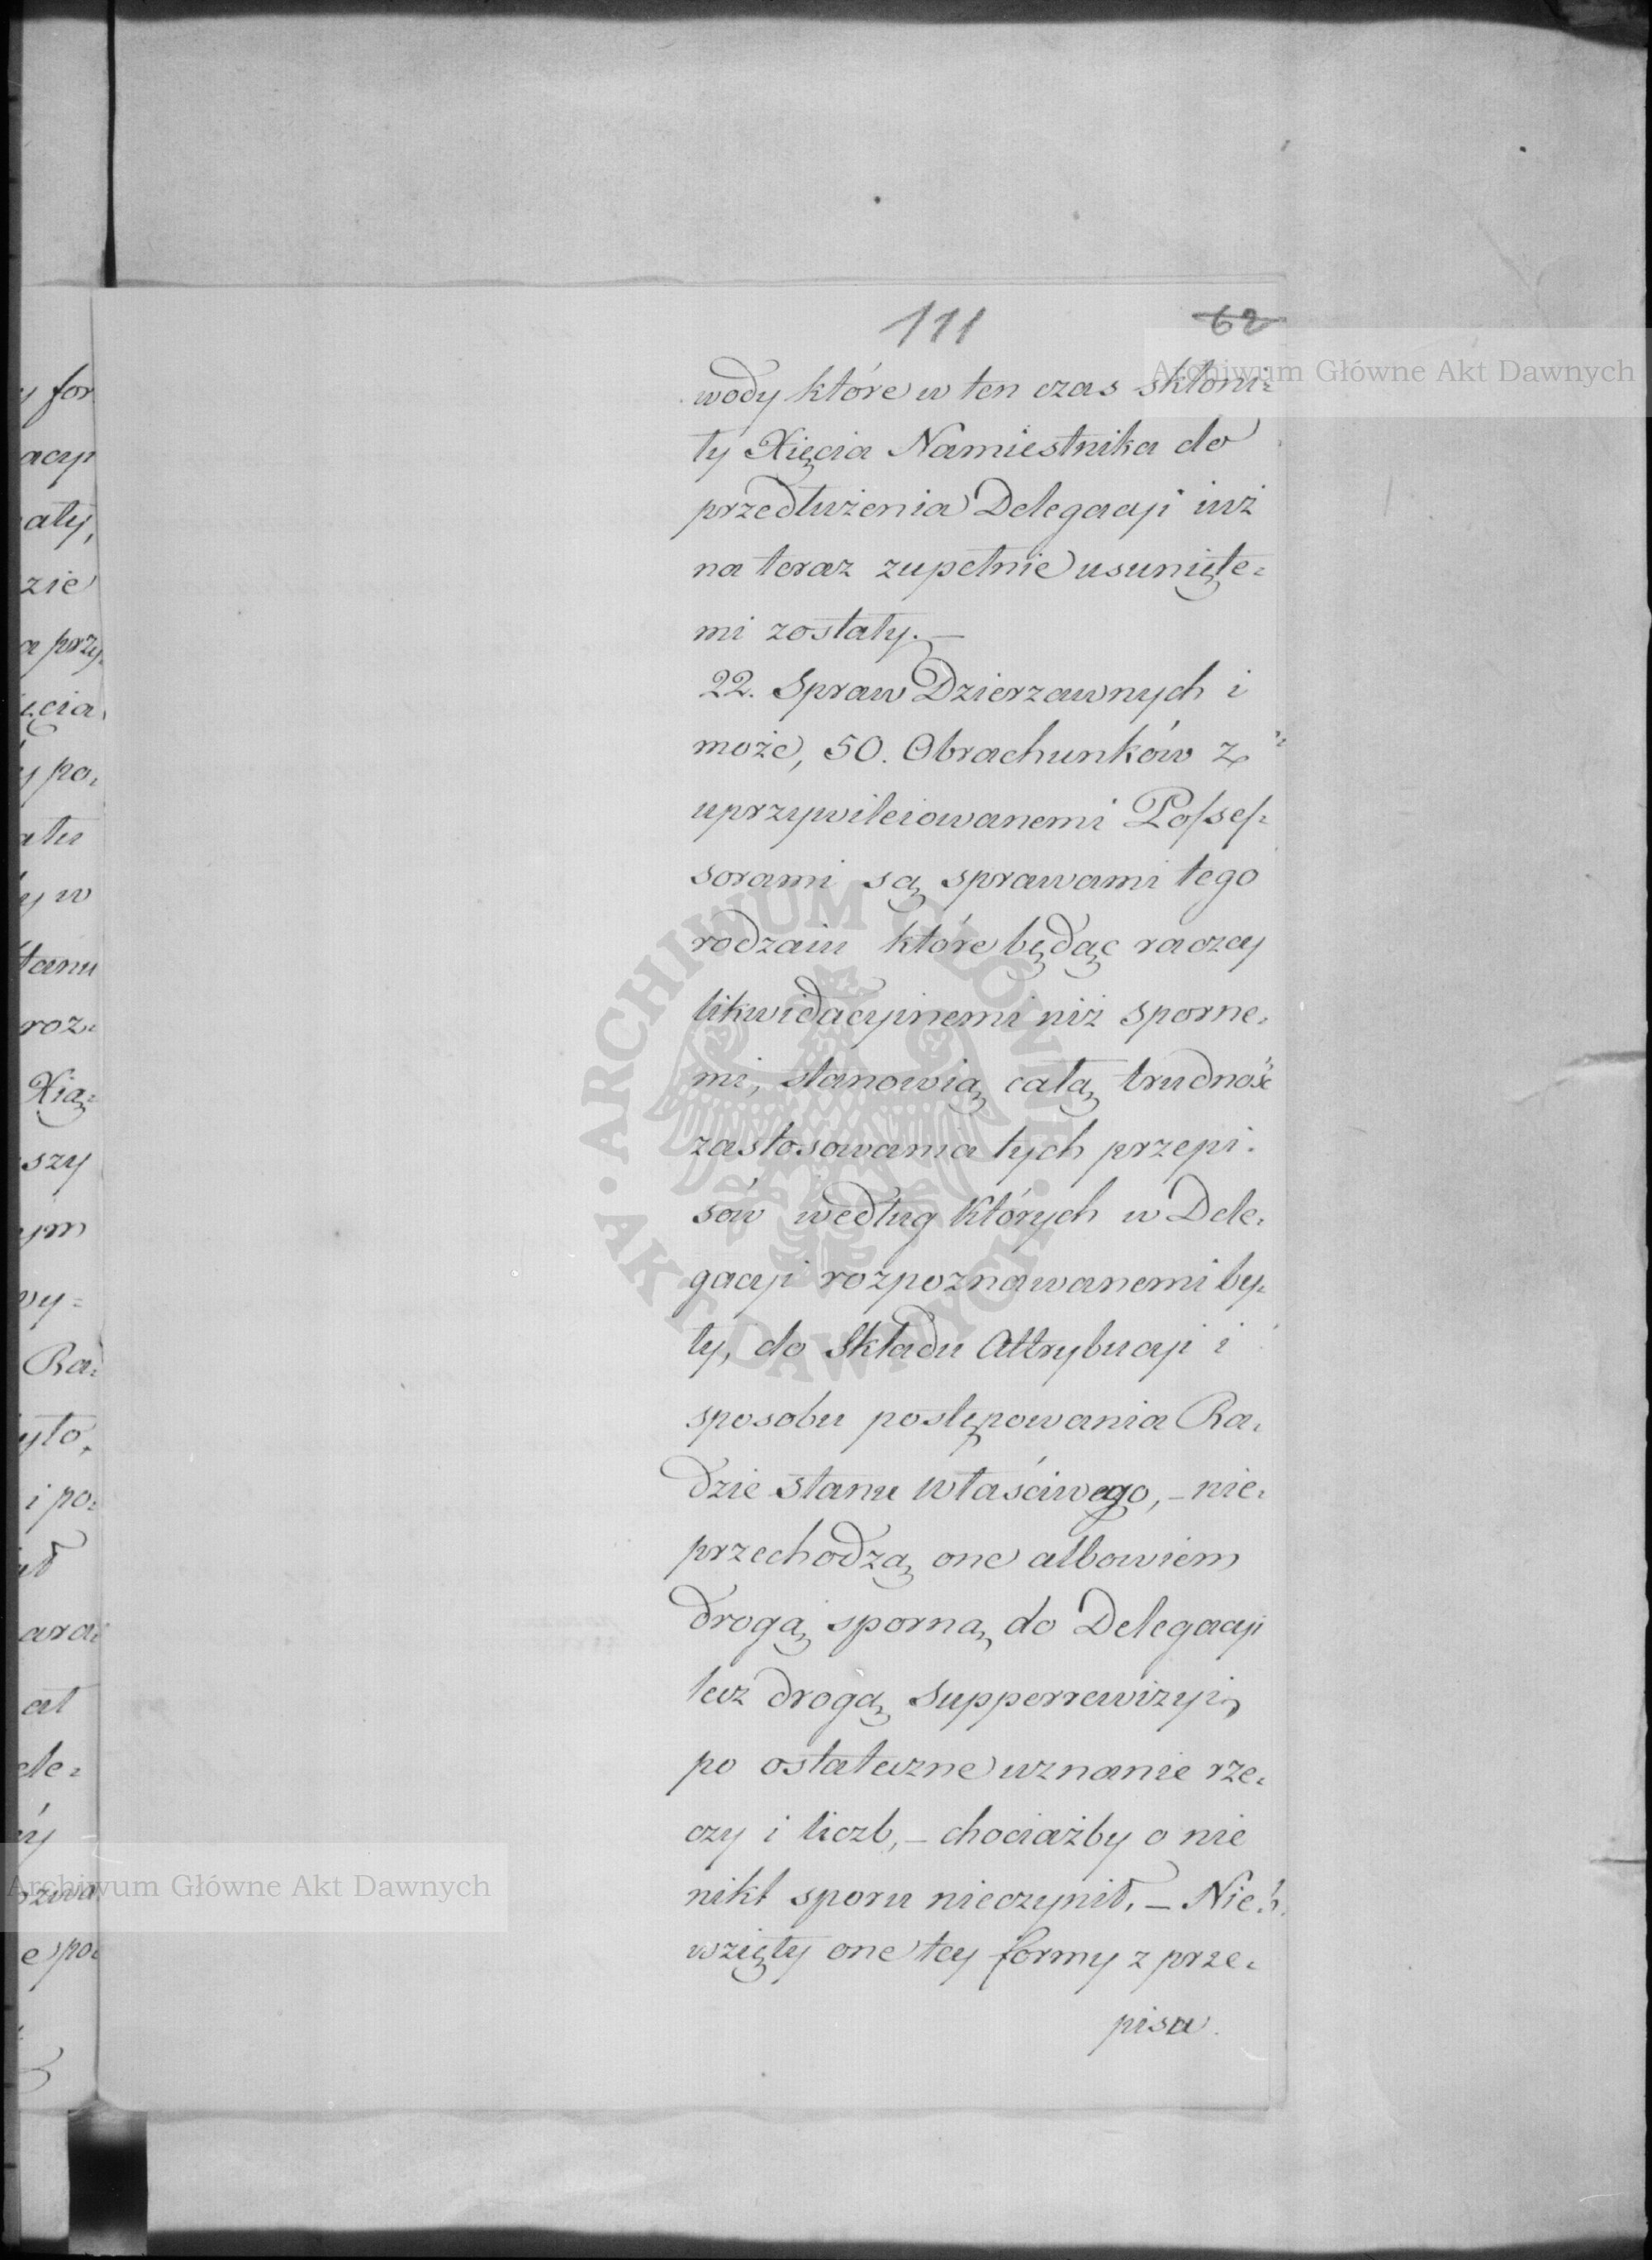 111 62
wody które w ten czas skłoni=
ły Xięcia Namiestnika do
przedłużenia Delegacyi iuż
na teraz zupełnie usunięte=
mi zostały. —
22. Spraw Dzierzawnych i
może, 50. Obrachunków z
uprzywileiowanemi Possess=
sorami są sprawami tego
rodzaiu które będąc raczey
likwidacyinemi niż sporne=
mi, stanowią całą trudność
zastosowania tych przepi=
sów według których w Dele=
gacyi rozpoznawanemi by=
ły, do Składu Attrybucyi i
sposobu postępowania Ra=
dzie Stanu właściwego, — nie=
przechodzą one albowiem
drogą sporną do Delegacyi
lecz drogą Supperrewizyi,
po ostateczne uznanie rze=
czy i liczb, — chociażby o nie
nikt sporu nieczynił. — Nie
wzięły one tey formy z prze=
pisu
y for
acyi
ały,
zie
a przy
ięcia
y po=
y w
tanu
roz=
Xią=
szy
ym
wy=
Ra=
yło,
i po=
ara=
ał
ele=
e po=
Archiwum Główne Akt Dawnych
Archiwum Główne Akt Dawnych
ARCHIWUM GŁÓWNE · AKT DAWNYCH ·